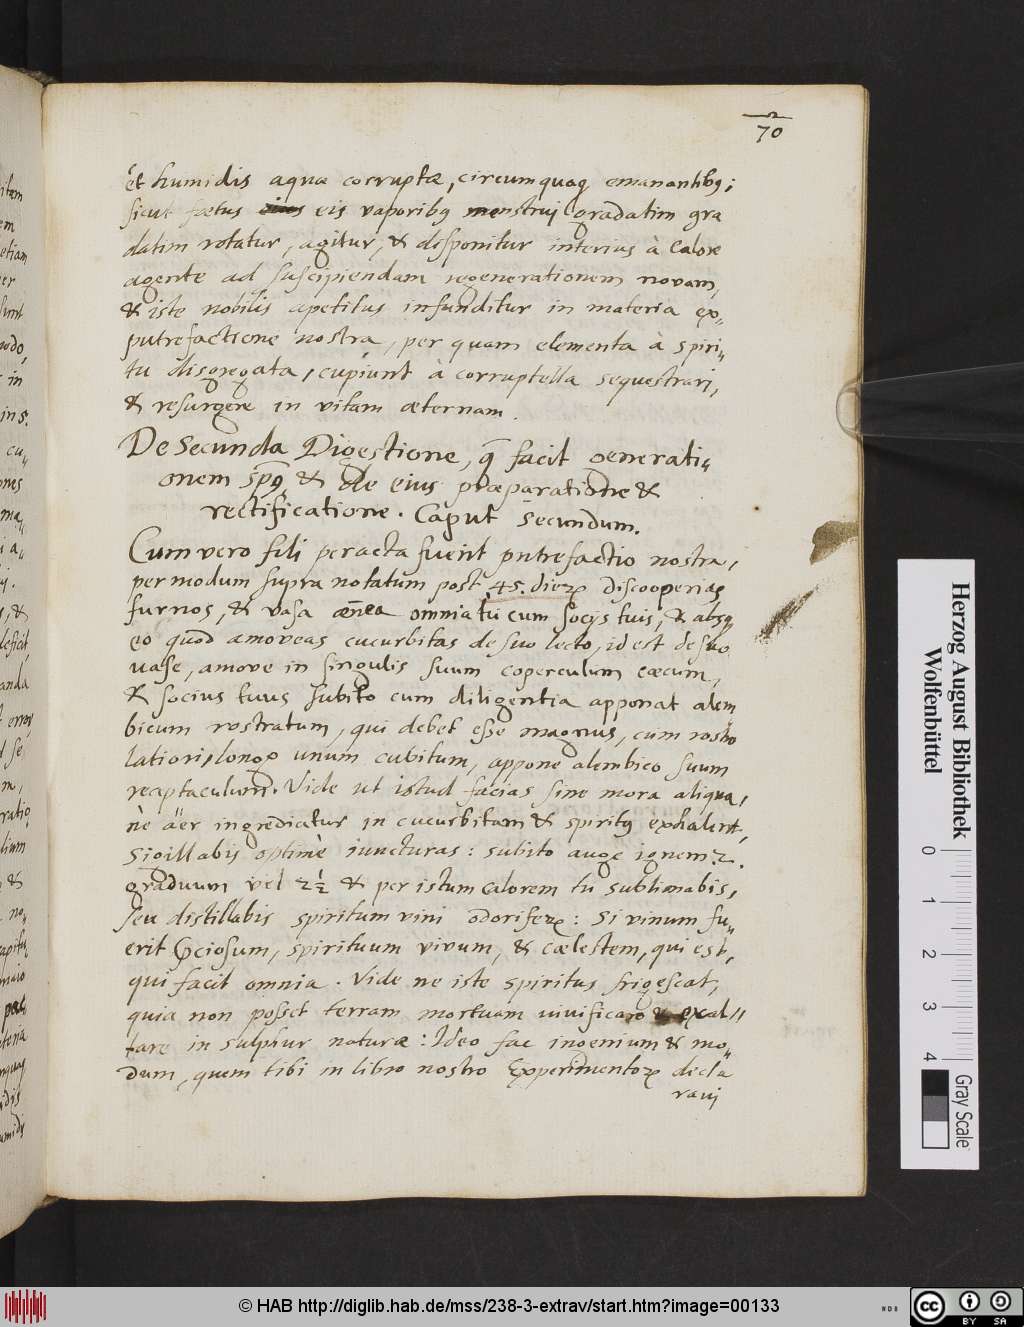 70
et humidis aquæ corruptæ, circumquaq emanantibq;
sicut fœtus eius eis vaporibq menstrui gradatim gra
datim rotatur, agitur, & disponitur interius à calore
agente ad suscipiendam regenerationem novam,
& iste nobilis apetitus infunditur in materia ex„
putrefactione nostra, per quam elementa à spiri„
tu disgregata, cupiunt à corruptella sequestrari,
& resurgere in vitam æternam.
De Secunda Digestione, q̄ facit generati„
onem sp̄q & de eius præparatione &
rectificatione. Caput secundum.
Cum vero fili peracta fuerit putrefactio nostra,
per modum supra notatum post 45. dieꝝ discooperias
furnos, & vasa ænea omnia tū cum socijs tuis, & absq,
eo quod amoveas cucurbitas de suo lecto, id est de suo
vase, amove in singulis suum coperculum cæcum,
& socius tuus subito cum diligentia apponat alem„
bicum rostratum, qui debet esse magnus, cum rostro
latiori, longo unum cubitum, appone alembico suum
receptaculum. Vide ut istud facias sine mora aliqua,
nè äer ingrediatur in cucurbitam & spiritq exhalent,
sigillabis optimè iuncturas: subito auge ignem 2.
graduum vel 2½ & per istum calorem tu sublimabis,
seu distillabis spiritum vini odoriferꝝ: si vinum fu„
erit p̄ciosum, spirituum vivum, & cælestem, qui est,
qui facit omnia. Vide ne iste spiritus frigescat,
quia non posset terram mortuam vivificare & exal„
tare in sulphur naturæ: Ideo fac ingenium & mo„
dum, quem tibi in libro nostro Experimentoꝝ decla
ravi
Herzog August Bibliothek
Wolfenbüttel
0 1 2 3 4
Gray Scale
© HAB http://diglib.hab.de/mss/238-3-extrav/start.htm?image=00133
cc BY SA